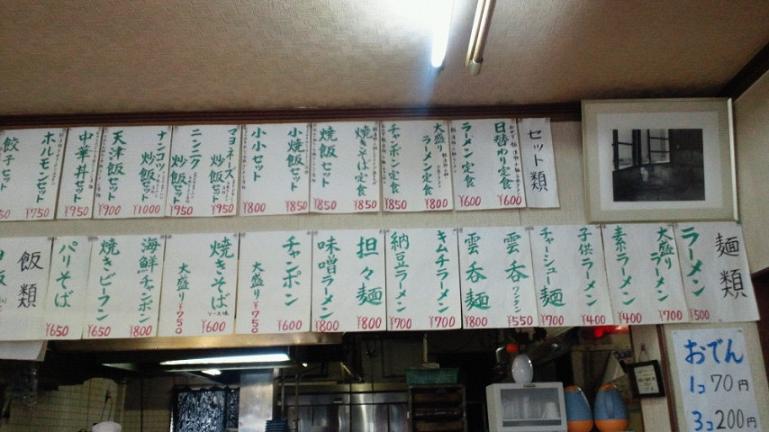 セット類
日替わり定食
¥600
ラーメン定食
¥600
大盛り
ラーメン定食
¥800
チャンポン定食
¥850
焼きそば定食
¥850
焼飯セット
¥850
小焼飯セット
¥850
小小セット
¥800
マヨネーズ
炒飯セット
¥950
ニンニク
炒飯セット
¥950
ナンコツ
炒飯セット
¥1000
天津飯セット
¥900
中華丼セット
¥950
ホルモンセット
¥750
餃子セット
麺類
ラーメン
¥500
大盛り
ラーメン
¥700
素ラーメン
¥400
子供ラーメン
¥400
チャーシュー麺
¥700
雲呑
ワンタン
¥550
雲呑麺
¥800
キムチラーメン
¥700
納豆ラーメン
¥700
担々麺
¥800
味噌ラーメン
¥800
チャンポン
¥600
大盛り
¥750
焼きそば
ソース味
¥600
大盛り
¥750
海鮮チャンポン
¥800
焼きビーフン
¥650
パリそば
¥650
飯類
おでん
1コ70円
3コ200円